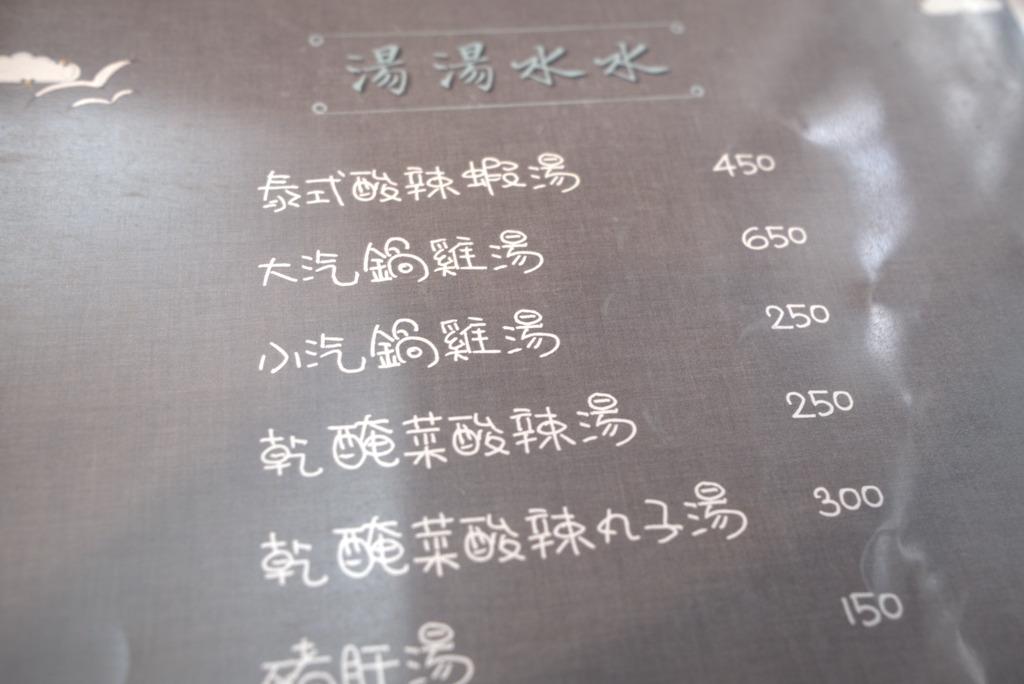 湯湯水水
泰式酸辣蝦湯 450
大汽鍋雞湯 650
小汽鍋雞湯 250
乾醃菜酸辣湯 250
乾醃菜酸辣丸子湯 300
豬肝湯 150